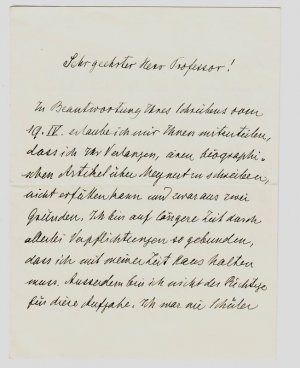 Sehr geehrter Herr Professor!
In Beantwortung Ihres Schreibens vom
19. IV. erlaube ich mir Ihnen mitzuteilen,
dass ich Ihr Verlangen, einen biographi-
schen Artikel über Meynert zu schreiben,
nicht erfüllen kann und zwar aus zwei
Gründen. Ich bin auf längere Zeit durch
allerlei Verpflichtungen so gebunden,
dass ich mit meiner Zeit Haus halten
muss. Ausserdem bin ich nicht der Richtige
für diese Aufgabe. Ich war nie Schüler